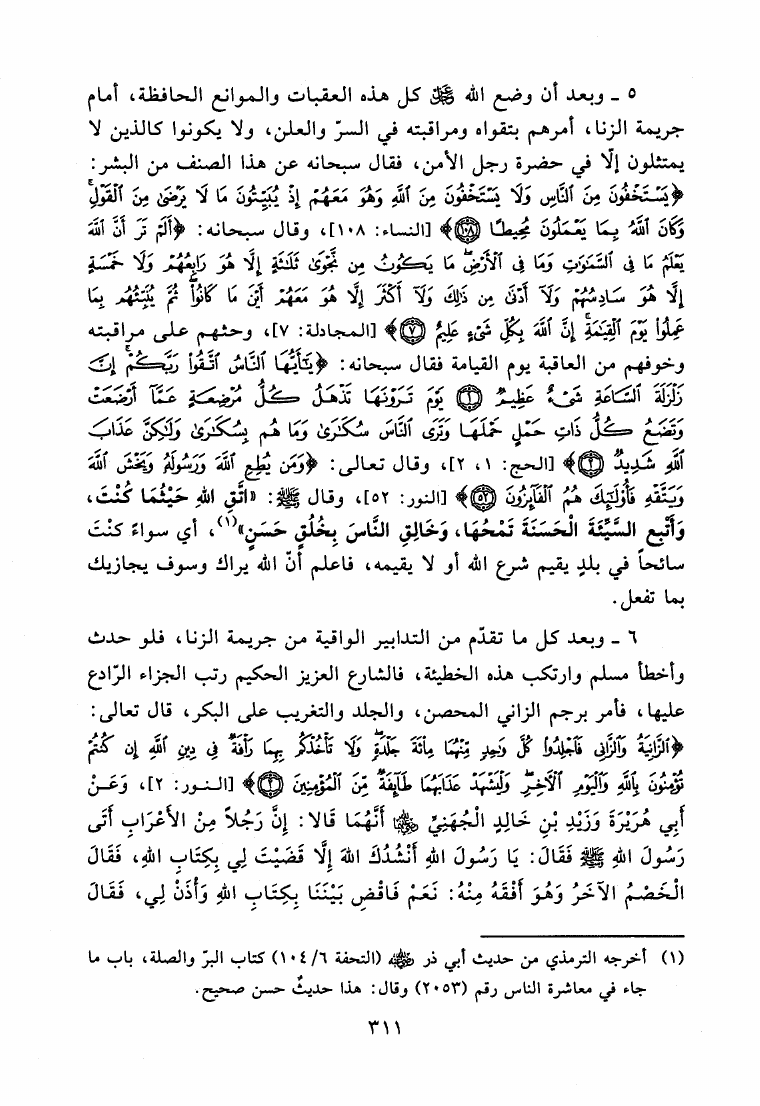 ٥ ـ وبعد أن وضع الله ﷻ كل هذه العقبات والموانع الحافظة، أمام
جريمة الزنا، أمرهم بتقواه ومراقبته في السرّ والعلن، ولا يكونوا كالذين لا
يمتثلون إلّا في حضرة رجل الأمن، فقال سبحانه عن هذا الصنف من البشر:
﴿يَسْتَخْفُونَ مِنَ ٱلنَّاسِ وَلَا يَسْتَخْفُونَ مِنَ ٱللَّهِ وَهُوَ مَعَهُمْ إِذْ يُبَيِّتُونَ مَا لَا يَرْضَىٰ مِنَ ٱلْقَوْلِۚ
وَكَانَ ٱللَّهُ بِمَا يَعْمَلُونَ مُحِيطًا ﴿١٠٨﴾﴾ [النساء: ١٠٨]، وقال سبحانه: ﴿أَلَمْ تَرَ أَنَّ ٱللَّهَ
يَعْلَمُ مَا فِى ٱلسَّمَٰوَٰتِ وَمَا فِى ٱلْأَرْضِۖ مَا يَكُونُ مِن نَّجْوَىٰ ثَلَٰثَةٍ إِلَّا هُوَ رَابِعُهُمْ وَلَا خَمْسَةٍ
إِلَّا هُوَ سَادِسُهُمْ وَلَآ أَدْنَىٰ مِن ذَٰلِكَ وَلَآ أَكْثَرَ إِلَّا هُوَ مَعَهُمْ أَيْنَ مَا كَانُوا۟ۖ ثُمَّ يُنَبِّئُهُم بِمَا
عَمِلُوا۟ يَوْمَ ٱلْقِيَٰمَةِۚ إِنَّ ٱللَّهَ بِكُلِّ شَىْءٍ عَلِيمٌ ﴿٧﴾﴾ [المجادلة: ٧]، وحثهم على مراقبته
وخوفهم من العاقبة يوم القيامة فقال سبحانه: ﴿يَٰٓأَيُّهَا ٱلنَّاسُ ٱتَّقُوا۟ رَبَّكُمْۚ إِنَّ
زَلْزَلَةَ ٱلسَّاعَةِ شَىْءٌ عَظِيمٌ ﴿١﴾ يَوْمَ تَرَوْنَهَا تَذْهَلُ كُلُّ مُرْضِعَةٍ عَمَّآ أَرْضَعَتْ
وَتَضَعُ كُلُّ ذَاتِ حَمْلٍ حَمْلَهَا وَتَرَى ٱلنَّاسَ سُكَٰرَىٰ وَمَا هُم بِسُكَٰرَىٰ وَلَٰكِنَّ عَذَابَ
ٱللَّهِ شَدِيدٌ ﴿٢﴾﴾ [الحج: ١، ٢]، وقال تعالى: ﴿وَمَن يُطِعِ ٱللَّهَ وَرَسُولَهُۥ وَيَخْشَ ٱللَّهَ
وَيَتَّقْهِ فَأُو۟لَٰٓئِكَ هُمُ ٱلْفَآئِزُونَ ﴿٥٢﴾﴾ [النور: ٥٢]، وقال ﷺ: «اتَّقِ اللهِ حَيْثُمَا كُنْتَ،
وَأَتْبِعِ السَّيِّئَةَ الْحَسَنَةَ تَمْحُهَا، وَخَالِقِ النَّاسَ بِخُلُقٍ حَسَنٍ»(١)، أي سواءً كنتَ
سائحاً في بلدٍ يقيم شرع الله أو لا يقيمه، فاعلم أنّ الله يراك وسوف يجازيك
بما تفعل.
٦ ـ وبعد كل ما تقدّم من التدابير الواقية من جريمة الزنا، فلو حدث
وأخطأ مسلم وارتكب هذه الخطيئة، فالشارع العزيز الحكيم رتب الجزاء الرّادع
عليها، فأمر برجم الزاني المحصن، والجلد والتغريب على البكر، قال تعالى:
﴿ٱلزَّانِيَةُ وَٱلزَّانِى فَٱجْلِدُوا۟ كُلَّ وَٰحِدٍ مِّنْهُمَا مِا۟ئَةَ جَلْدَةٍۖ وَلَا تَأْخُذْكُم بِهِمَا رَأْفَةٌ فِى دِينِ ٱللَّهِ إِن كُنتُمْ
تُؤْمِنُونَ بِٱللَّهِ وَٱلْيَوْمِ ٱلْءَاخِرِۖ وَلْيَشْهَدْ عَذَابَهُمَا طَآئِفَةٌ مِّنَ ٱلْمُؤْمِنِينَ ﴿٢﴾﴾ [النور: ٢]، وَعَنْ
أَبِي هُرَيْرَةَ وَزَيْدِ بْنِ خَالِدٍ الْجُهَنِيِّ رضي الله عنهما أَنَّهُمَا قَالَا: إِنَّ رَجُلاً مِنَ الأَعْرَابِ أَتَى
رَسُولَ اللهِ ﷺ فَقَالَ: يَا رَسُولَ اللهِ أَنْشُدُكَ اللهَ إِلَّا قَضَيْتَ لِي بِكِتَابِ اللهِ، فَقَالَ
الْخَصْمُ الآخَرُ وَهُوَ أَفْقَهُ مِنْهُ: نَعَمْ فَاقْضِ بَيْنَنَا بِكِتَابِ اللهِ وَأْذَنْ لِي، فَقَالَ
(١) أخرجه الترمذي من حديث أبي ذر رضي الله عنه (التحفة ١٠٤/٦) كتاب البرّ والصلة، باب ما
جاء في معاشرة الناس رقم (٢٠٥٣) وقال: هذا حديثٌ حسن صحيح.
٣١١